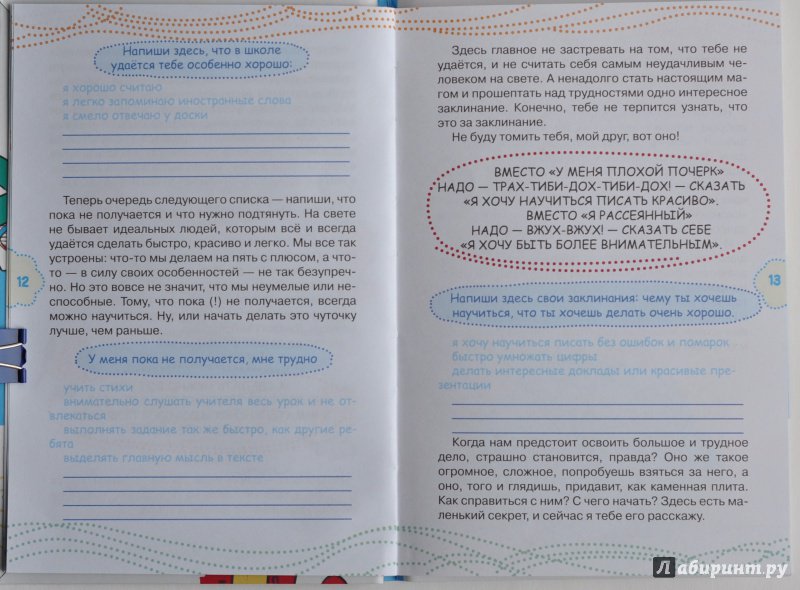 Напиши здесь, что в школе
удаётся тебе особенно хорошо:
я хорошо считаю
я легко запоминаю иностранные слова
я смело отвечаю у доски
Теперь очередь следующего списка — напиши, что
пока не получается и что нужно подтянуть. На свете
не бывает идеальных людей, которым всё и всегда
удаётся сделать быстро, красиво и легко. Мы все так
устроены: что-то мы делаем на пять с плюсом, а что-
то — в силу своих особенностей — не так безупреч-
но. Но это вовсе не значит, что мы неумелые или не-
способные. Тому, что пока (!) не получается, всегда
можно научиться. Ну, или начать делать это чуточку
лучше, чем раньше.
12
У меня пока не получается, мне трудно
учить стихи
внимательно слушать учителя весь урок и не от-
влекаться
выполнять задание так же быстро, как другие ре-
бята
выделять главную мысль в тексте
Здесь главное не застревать на том, что тебе не
удаётся, и не считать себя самым неудачливым че-
ловеком на свете. А ненадолго стать настоящим ма-
гом и прошептать над трудностями одно интересное
заклинание. Конечно, тебе не терпится узнать, что
это за заклинание.
Не буду томить тебя, мой друг, вот оно!
ВМЕСТО «У МЕНЯ ПЛОХОЙ ПОЧЕРК»
НАДО — ТРАХ-ТИБИ-ДОХ-ТИБИ-ДОХ! — СКАЗАТЬ
«Я ХОЧУ НАУЧИТЬСЯ ПИСАТЬ КРАСИВО».
ВМЕСТО «Я РАССЕЯННЫЙ»
НАДО — ВЖУХ-ВЖУХ! — СКАЗАТЬ СЕБЕ
«Я ХОЧУ БЫТЬ БОЛЕЕ ВНИМАТЕЛЬНЫМ».
13
Напиши здесь свои заклинания: чему ты хочешь
научиться, что ты хочешь делать очень хорошо.
я хочу научиться писать без ошибок и помарок
быстро умножать цифры
делать интересные доклады или красивые пре-
зентации
Когда нам предстоит освоить большое и трудное
дело, страшно становится, правда? Оно же такое
огромное, сложное, попробуешь взяться за него, а
оно, того и глядишь, придавит, как каменная плита.
Как справиться с ним? С чего начать? Здесь есть ма-
ленький секрет, и сейчас я тебе его расскажу.
Лабиринт.ру